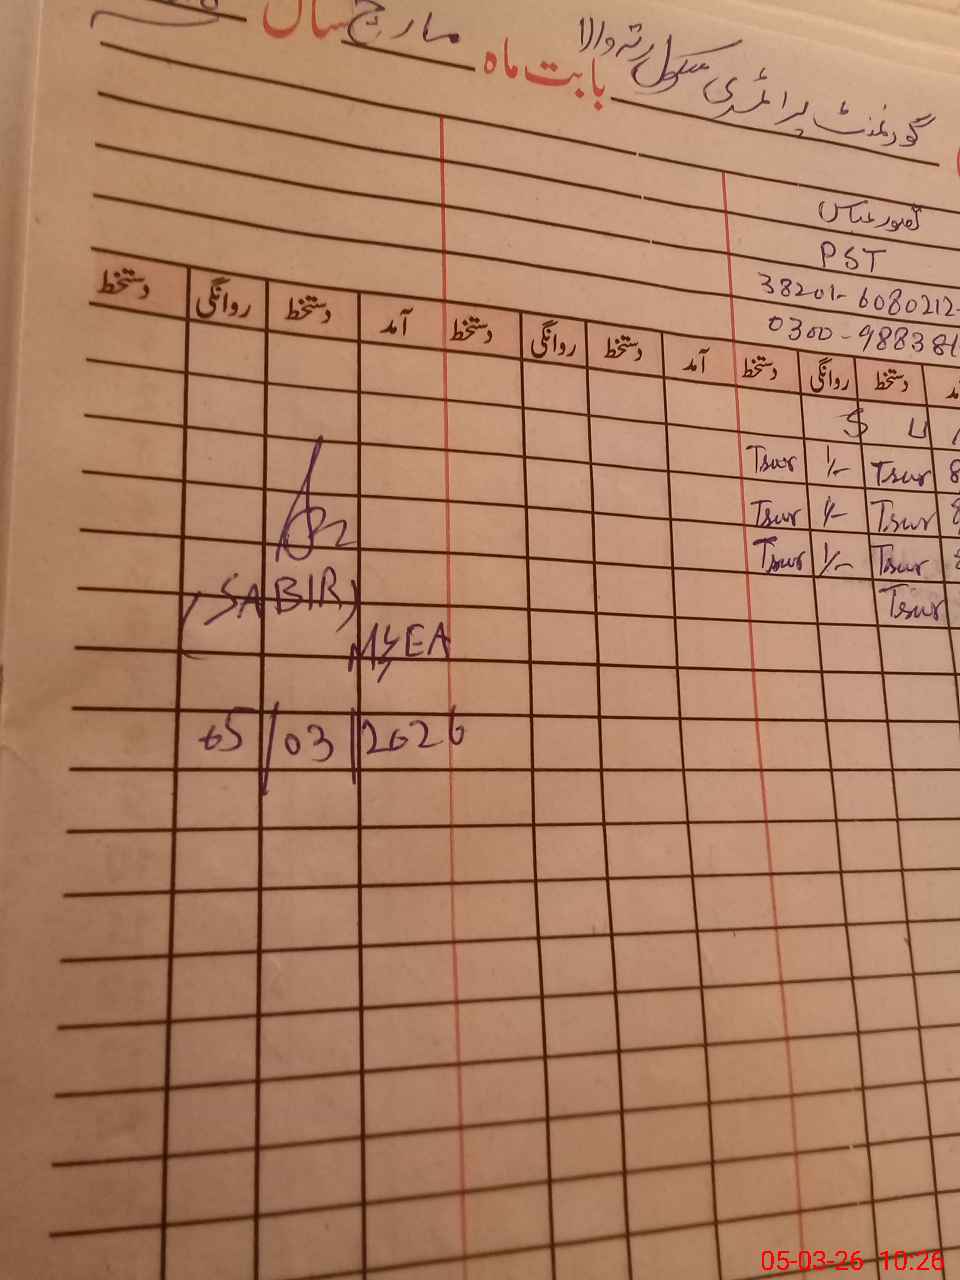 گورنمنٹ پرائمری سکول رتہ والا بابت ماہ مارچ سال
تصور عباس
PST
38201-6080212-
0300-988381
آمد دستخط روانگی دستخط آمد دستخط روانگی دستخط آمد دستخط روانگی دستخط
S U
8 Tsur 1/- Tsur
8 Tsur 1/- Tsur
8 Tsur 1/- Tsur
Tsur
(SABIR)
MEA
05/03/2026
05-03-26 10:26